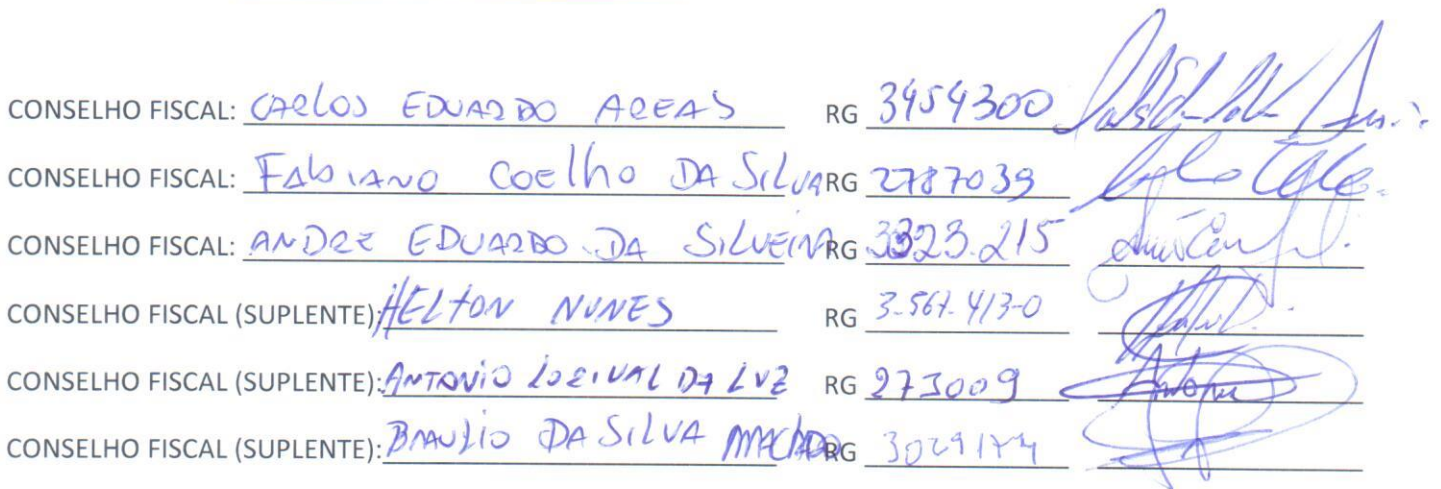 CONSELHO FISCAL: CARLOS EDUARDO AREAS RG 3454300
CONSELHO FISCAL: FABIANO COELHO DA SILVA RG 2787039
CONSELHO FISCAL: ANDRE EDUARDO DA SILVEIRA RG 3323.215
CONSELHO FISCAL (SUPLENTE): HELTON NUNES RG 3.567.413-0
CONSELHO FISCAL (SUPLENTE): ANTONIO LORIVAL DA LUZ RG 273009
CONSELHO FISCAL (SUPLENTE): BRAULIO DA SILVA MACHADO RG